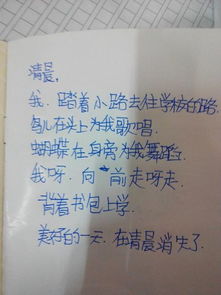 清晨,
我. 踏着小路去住学校的路.
鸟儿在头上为我歌唱.
蝴蝶在身旁为我舞蹈.
我呀. 向前走呀走.
背着书包上学.
美好的一天. 在清晨消失了.